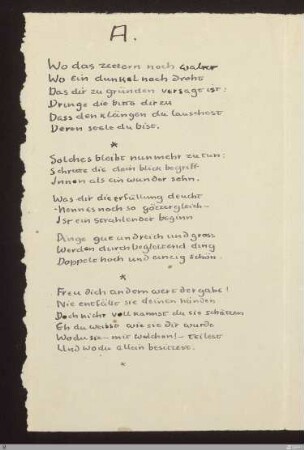 A.
Wo das zeelorn noch waltet
Wo ein dunkel noch droht
Das dir zu gründen versagt ist:
Dringe die bitte dir zu
Dass den klängen du lauschest
Deren seele du bist.
*
Solches bleibt nunmehr zu tun:
Schätze die dein blick begriff
Innen als ein wunder sehn.
Was dir die erfüllung deucht
Nennes noch so
Ist ein strahlender beginn
Dinge gut und reich und gross
Werden durch begleitend ding
Doppelt hoch und einzig schön.
*
Freu dich an dem wert der gabe!
Nie entfällt sie deinen händen
Doch nicht voll kannst du sie schätzen
Eh du weisst wie sie dir wurde
Wo du sie - mit welchen! - teilest
Und wo du allein besitzest.
*